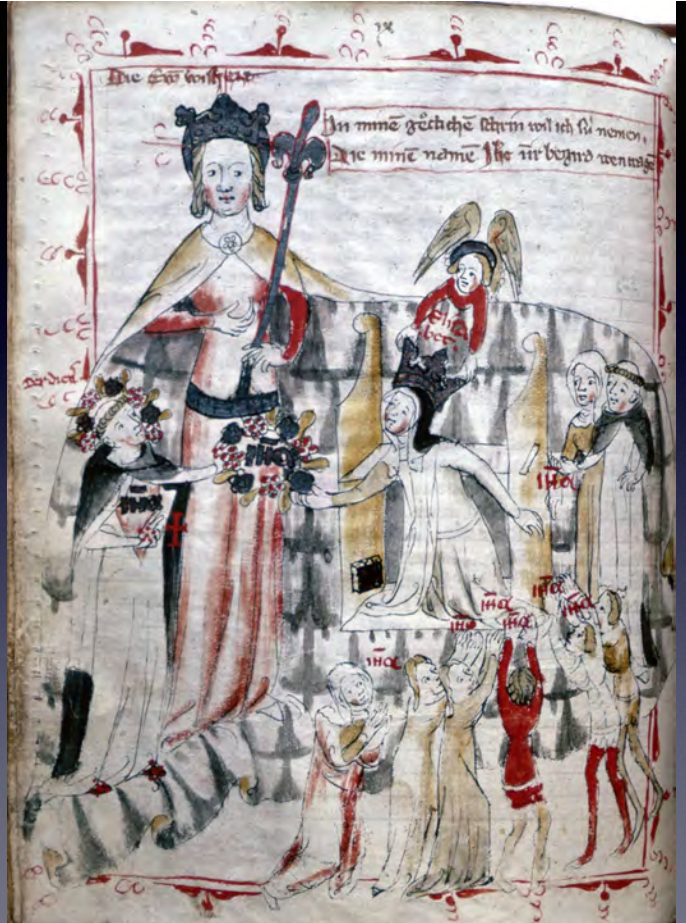 Die Ewig wisheit
In minē gôtlichē schirm wil ich sú nemen.
Die minē namē Ihc in ir begird wen tragē
Elisa
bet
der die
IHC
IHC
IHC
IHC
IHC
IHC
IHC
IHC
IHC